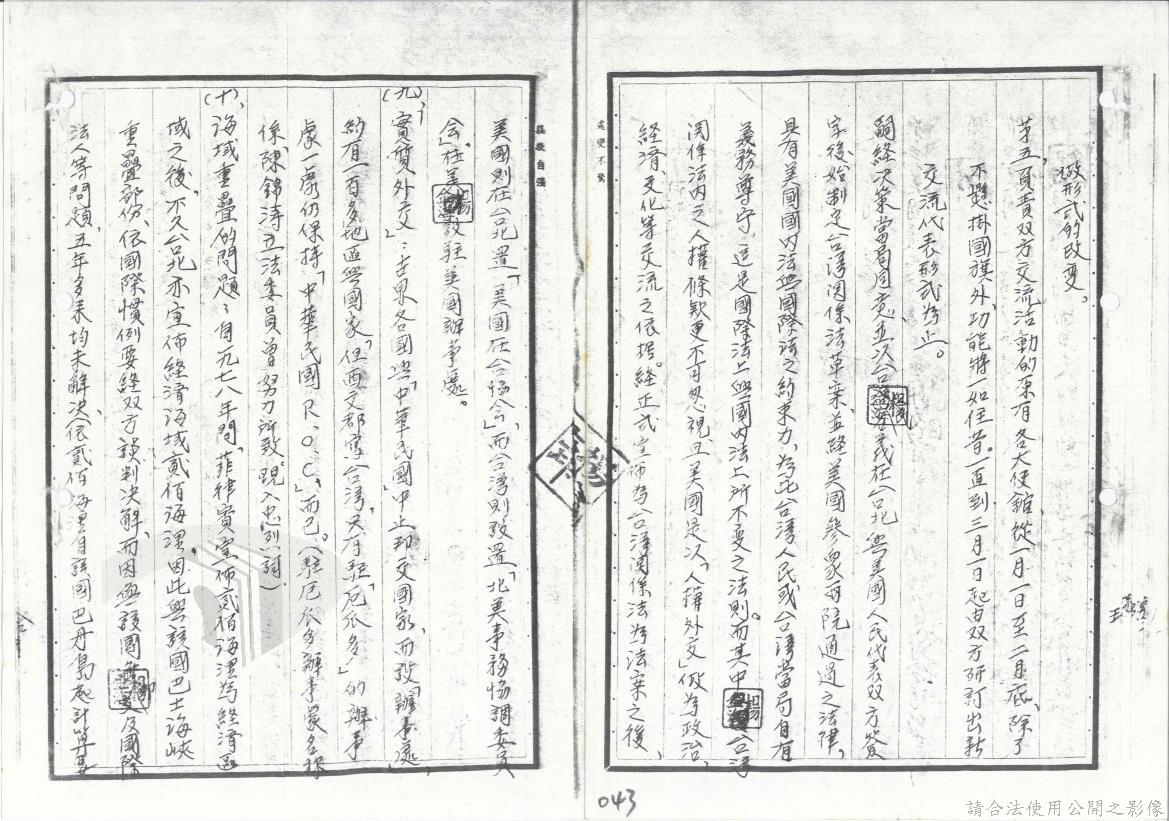 微形式的改变。
第五、負責双方交流活動的原有各大使館從一月一日至二月底、除了
不懸掛國旗外、功能將一如往昔。一直到三月一日起由双方研訂出新
交流代表形式為止。
嗣経決策當局同意、並以台灣名義在台北與美國人民代表双方簽
字後、始制定《台湾関係法草案、並経美國參衆両院通過之法律、
具有美國國内法與國際法之約束力、為此台湾人民或台湾當局自有
義務尊守、這是國際法上與國内法上所不变之法則。而其中台湾
関係法内之人權條欵更不可忽視、且美國是以「人權外交」做為政治、
経済、文化等交流之依据。経正式宣佈為台湾関係法為法案之後、
美國則在台北置「美國在台協會」而台湾則設置「北美事務協調委員
会」在美設駐美國辦事處。
(九)、實質外交」:古界各國與「中華民國」中止邦交國家、而設「辦事處」
約有一百多地區與國家、但西文都寫台湾、只有駐「厄瓜多」的辦事
處一處仍保持「中華民國R.O.C」而已。(駐厄瓜多辦事處名称
係陳錦濤立法委員曾努力所致、現入忠烈祠)
(十)、海域重疊的問題:自一九七八年間、菲律賓宣佈貳佰海浬為経濟區
域之後、不久台北亦宣佈経濟海域貳佰海浬、因此與該國巴士海峽
重疊部份、依國際慣例要経双方談判決解、而因與該國無邦交及國際
法人等問題、五年多來均未解決、依貳佰海浬自該國巴丹島起計算要
處变不驚
莊敬自強
043
請合法使用公開之影像